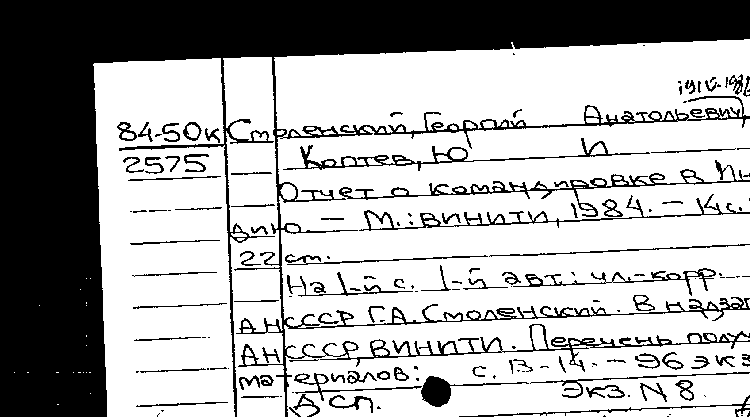 1910-1986
84-50к Смоленский, Георгий Анатольевич,
2575 Коптев, Ю И
Отчет о командировке в Ин
дию. — М.: ВИНИТИ, 1984. — 14с.
22 см.
На 1-й с. 1-й авт.: чл.-корр.
АН СССР Г.А. Смоленский. В надзаг
АН СССР, ВИНИТИ. Перечень полу
материалов: с. 13-14. — 96 экз
Дсп. Экз. N 8.